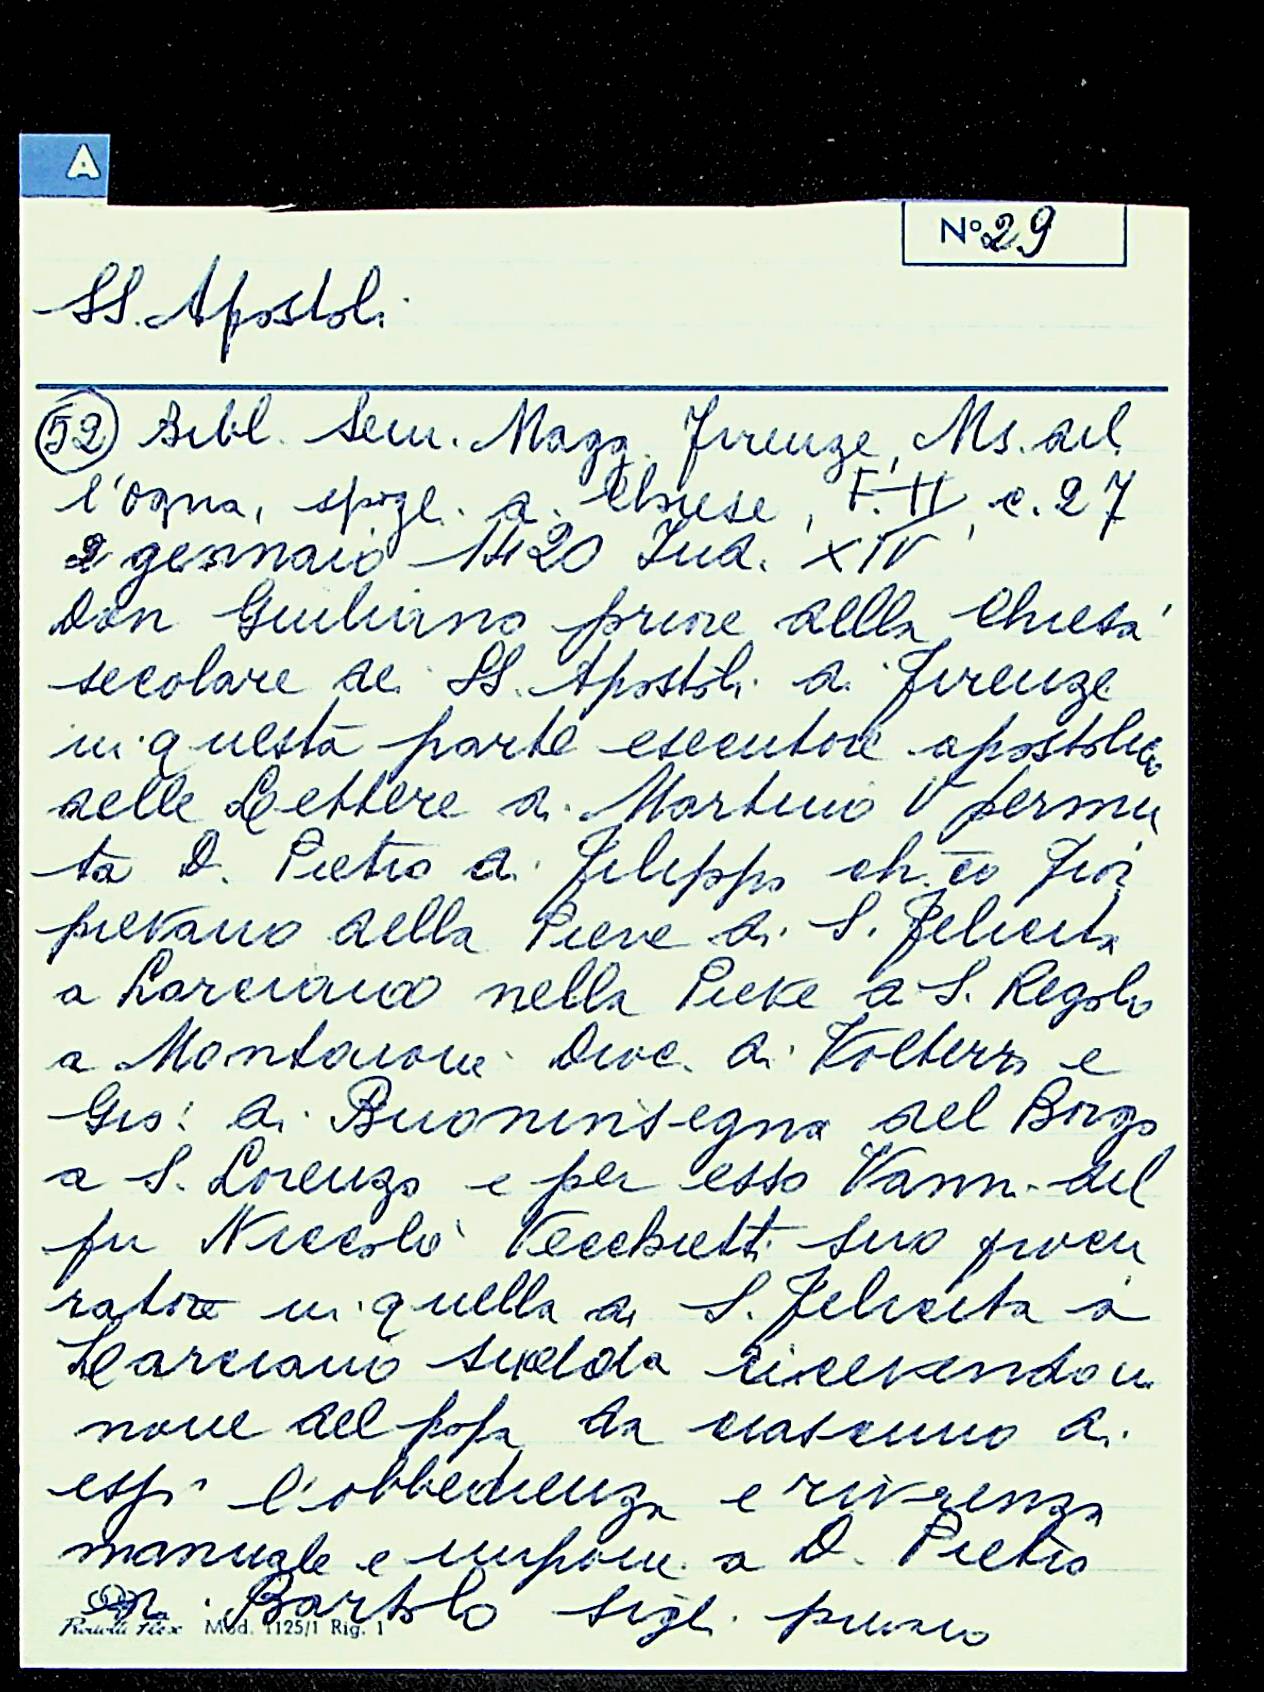 A
N° 29
SS. Apostoli
52 Bibl. Sem. Magg. Firenze, Ms. del
l'ogna, spogl. di Chiese, F. II, c. 27
2 gennaio 1420 Ind. XIV
Don Giuliano priore della Chiesa
secolare dei SS. Apostoli di Firenze
in questa parte esecutore apostolico
delle Lettere di Martino V permu
ta D. Pietro di Filippo ch.co Fior.
pievano della Pieve di S. Felicita
a Larciano nella Pieve a S. Regolo
a Montaione Dioc. di Volterra e
Gio: di Buoninsegna del Borgo
a S. Lorenzo e per esso Vanni del
fu Niccolò Vecchietti suo procu
ratore in quella di S. Felicita a
Larciano sudda ricevendo in
nome del papa da ciascuno di
essi l'obbedienza e riverenza
manuale e impone a D. Pietro
Bartolo
Mod. 1125/1 Rig. 1